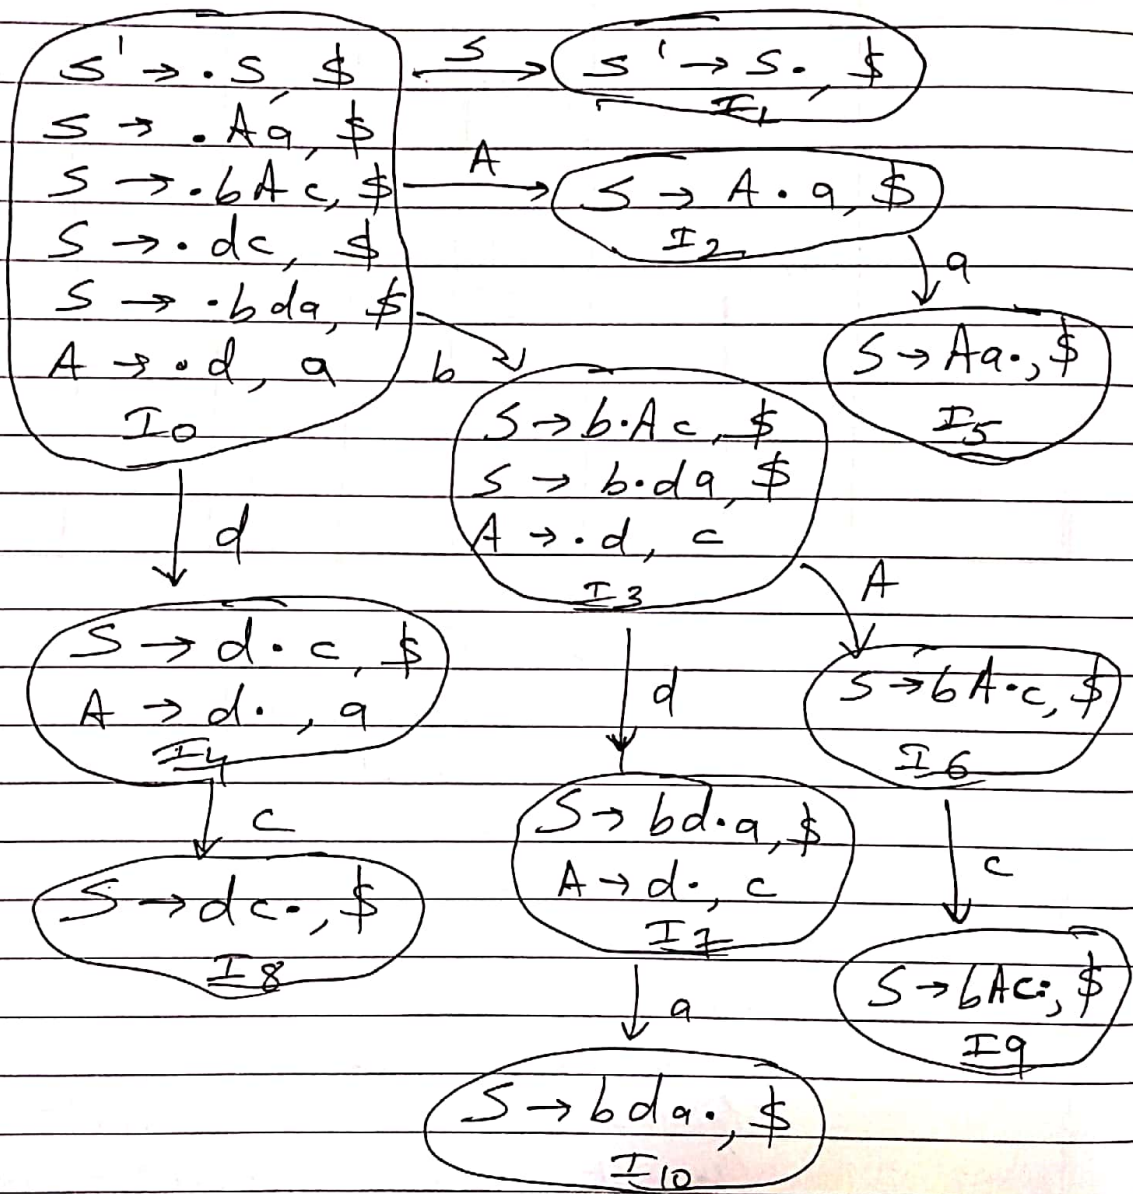 S' → .S, $
S → .Aa, $
S → .bAc, $
S → .dc, $
S → .bda, $
A → .d, a
I0
S
S' → S., $
I1
A
S → A.a, $
I2
a
S → Aa., $
I5
b
S → b.Ac, $
S → b.da, $
A → .d, c
I3
d
S → d.c, $
A → d., a
I4
A
S → bA.c, $
I6
d
S → bd.a, $
A → d., c
I7
c
S → dc., $
I8
c
S → bAc., $
I9
a
S → bda., $
I10